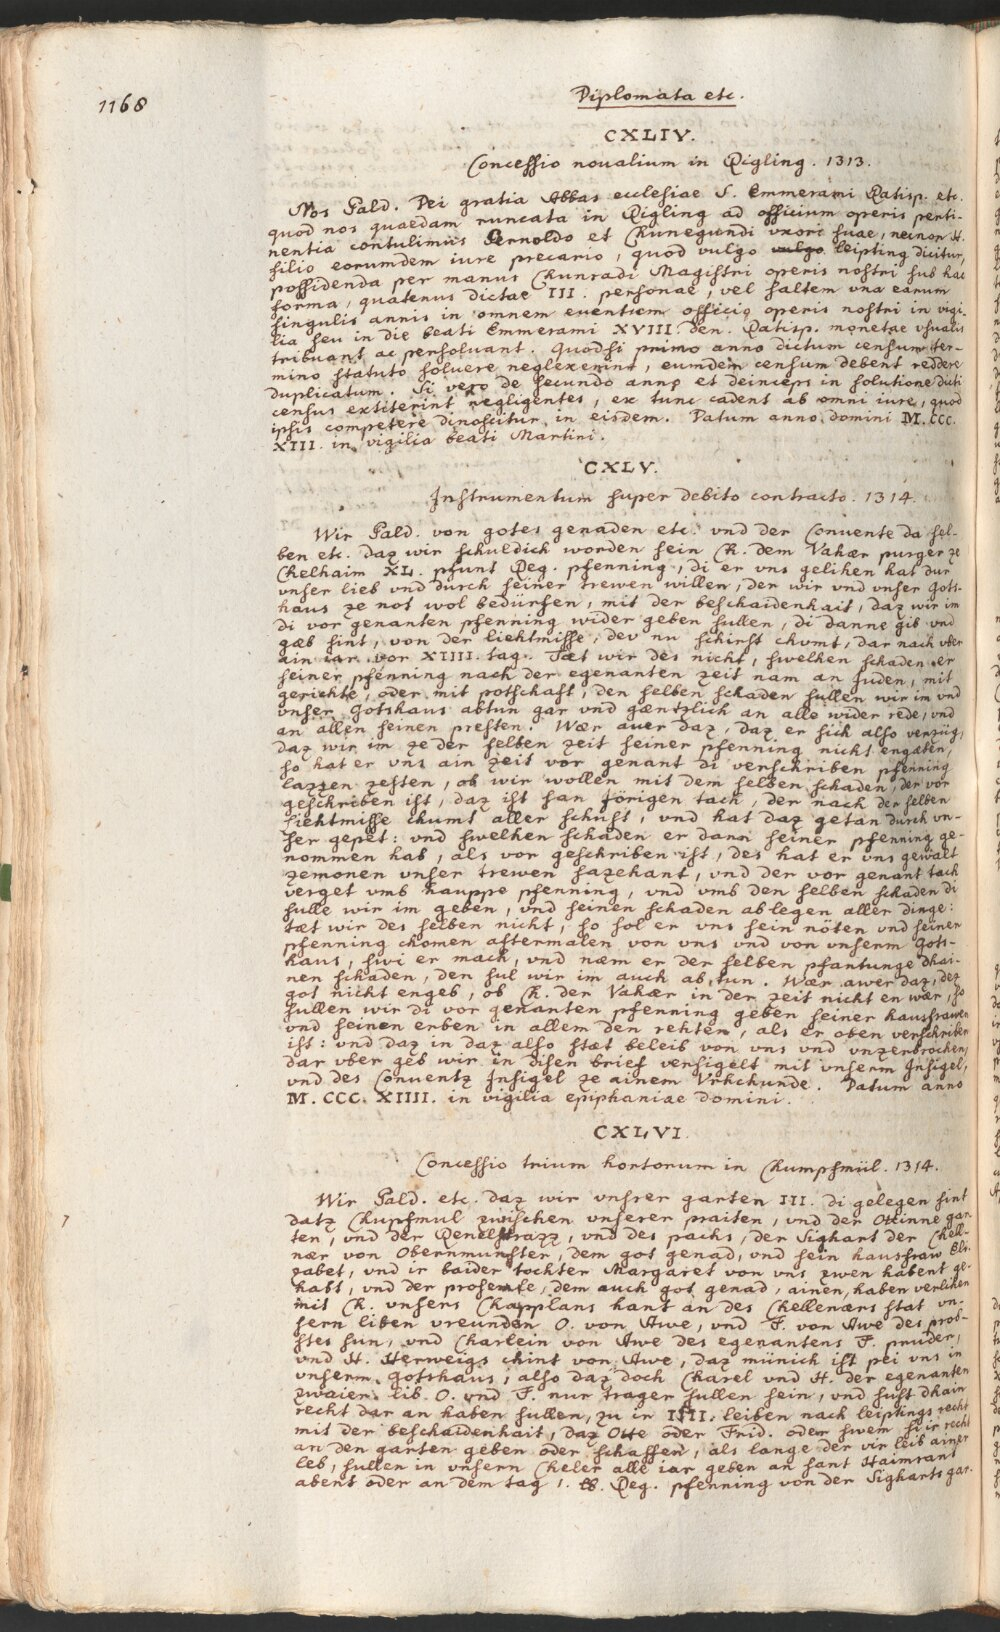 1168
Diplomata etc.
CXLIV.
Concessio noualium in Rigling. 1313.
Nos Bald. Dei gratia Abbas ecclesiae S. Emmerami Ratisp. etc.
quod nos quaedam runcata in Rigling ad officium operis perti-
nentia contulimus Bernoldo et Chunegundi vxori suae, neinon H.
filio eorumdem iure precario, quod vulgo vulgo leipting dicitur,
possidenda per manus Chunradi Magistri operis nostri sub hac
forma, quatenus dictae III. personae, vel saltem vna earum
singulis annis in omnem euentum officio operis nostri in vigi-
lia seu in die beati Emmerami XVIII. den. Ratisp. monetae vsualis
tribuant ac persoluant. Quodsi primo anno dictum censum ter-
mino statuto soluere neglexerint, eumdem censum debent reddere
duplicatum. Si vero de secundo anno et deinceps in solutione dicti
census extiterint negligentes, ex tunc cadent ab omni iure, quod
ipsis competere dinoscitur in eisdem. Datum anno domini M. CCC.
XIII. in vigilia beati Martini.
CXLV.
Instrumentum super debito contracto. 1314.
Wir Bald. von gotes genaden etc. vnd der Conuente da sel-
ben etc. daz wir schuldich worden sein Ch. dem Vahær purger ze
Chelhaim XL. pfunt Reg. pfenning, di er vns gelihen hat dur
vnser lieb vnd durch seiner trewen willen, der wir vnd vnser Gots-
haus ze not wol bedürfen, mit der beschaidenhait, daz wir im
di vor genanten pfenning wider geben sullen, di danne gib vnd
gæb sint, von der liehtmisse, dev nu schirst chvmt, dar nach vber
ain iar vor XIIII. tag. Tæt wir des nicht, swelhen schaden er
seiner pfenning nach der egenanten zeit nam an Juden, mit
gerichte, oder mit potschaft, den selben schaden sullen wir im vnd
vnser Gotshaus abtun gar vnd gæntzlich an alle wider rede, vnd
an allen seinen presten. Wær auer daz, daz er sich also verzüg,
daz wir im ze der selben zeit seiner pfenning nicht engæten,
so hat er vns ain zeit vor genant di verschriben pfenning
lazzen zesten, ob wir wollen mit dem selben schaden, der vor
geschriben ist, daz ist san Jörigen tach, der nach der selben
liehtmisse chumt aller schirst, vnd hat daz getan durch vn-
ser gepet: vnd swelhen schaden er dann seiner pfenning ge-
nommen hab, als vor geschriben ist, des hat er vns gewalt
zemonen vnser trewen sazehant, vnd der vor genant tach
verget vmb hauppe pfenning, vnd vmb den selben schaden di
sulle wir im geben, vnd seinen schaden ablegen aller dinge:
tæt wir des selben nicht, so sol er vns sein nöten vnd seiner
pfenning chomen aftermalen von vns vnd von vnserm Gots-
haus, swi er mach, vnd næm er der selben pfantunge dhai-
nen schaden, den sul wir im auch ab tun. Wær awer daz, dez
got nicht engeb, ob Ch. der Vahær in der zeit nicht en wær, so
sullen wir di vor genanten pfenning geben seiner hausfrawen
vnd seinen erben in allem den rehten, als er oben verschriben
ist: vnd daz in daz also stæt beleib von vns vnd vnzerbrochen,
dar vber geb wir in disen brief versigelt mit vnserm Insigel,
vnd des Conuentz Insigel ze ainem Vrkchunde. Datum anno
M. CCC. XIIII. in vigilia epiphaniae domini.
CXLVI.
Concessio trium hortorum in Chumpfmül. 1314.
Wir Bald. etc. daz wir vnsrer garten III. di gelegen sint
datz Chupfmul zwischen vnserer praiten, vnd der Ottinne gar-
ten, vnd der Renelstrazz, vnd des pachs, der Sighart der Chell-
nær von Obernmunster, dem got genad, vnd sein hausfraw Els-
zabet, vnd ir baider tochter Margaret von vns zwen habent ge-
habt, vnd der profente, dem auch got genad, ainen, haben verlihen
mit Ch. vnsers Chapplans hant an des Chellenærs stat vn-
sern liben vreunden O. von Awe, vnd F. von Awe des prob-
stes sun, vnd Charlein von Awe des egenantens F. pruder,
vnd H. Herweigs chint von Awe, daz münich ist pei vns in
vnserm Gotshaus, also daz doch Charel vnd H. der egenanten
zwaier lib O. vnd F. nur trager sullen sein, vnd süst dhain
recht dar an haben sullen, zu in IIII. leiben nach leiptings recht
mit der beschaidenhait, daz Otte oder Frid. oder swem si ir recht
an den garten geben oder schaffen, als lange der vir leib ainer
leb, sullen in vnsern Cheler alle iar geben an sant Haimrans
abent oder an dem tag 1. lb. Reg. pfenning von der Sigharts gar-